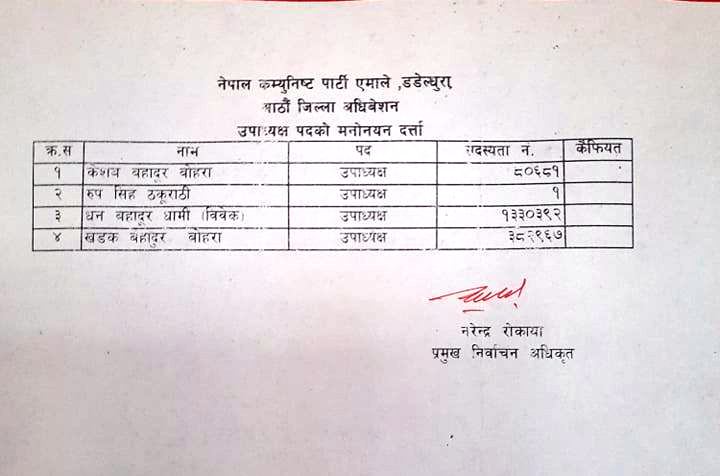 नेपाल कम्युनिष्ट पार्टी एमाले ,डडेल्धुरा
आठौं जिल्ला अधिवेशन
उपाध्यक्ष पदको मनोनयन दर्त्ता
क्र.स नाम पद सदस्यता न. कैफियत
१ केशव बहादूर बोहरा उपाध्यक्ष ८०६८१
२ रुप सिह ठकूराठी उपाध्यक्ष १
३ धन बहादूर धामी (विवेक) उपाध्यक्ष १३३०३९२
४ खडक बहादुर बोहरा उपाध्यक्ष
नरेन्द्र रोकाया
प्रमुख निर्वाचन अधिकृत